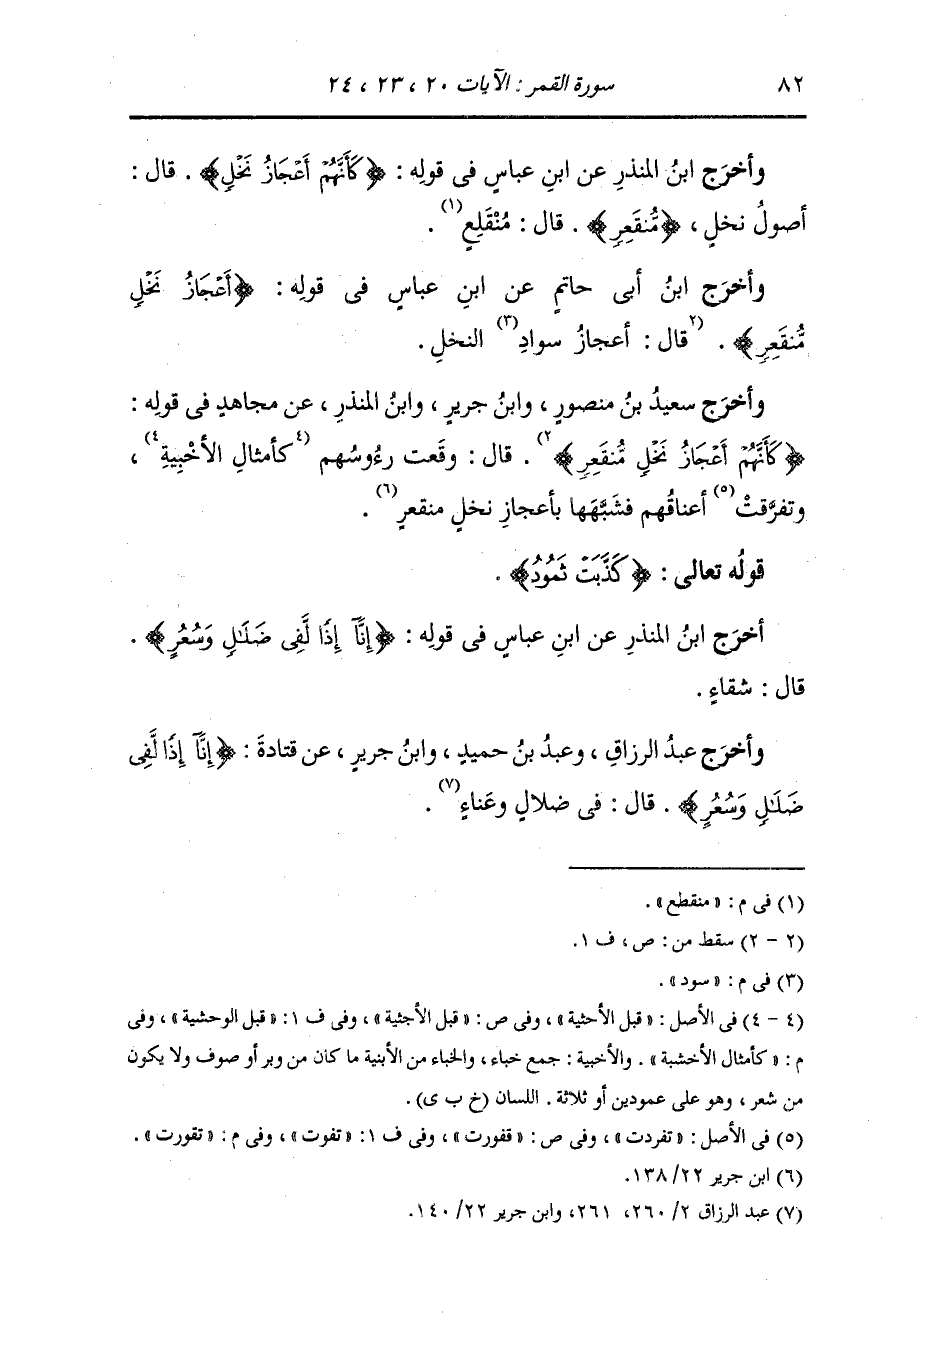 ٨٢ سورة القمر : الآيات ٢٠ ، ٢٣ ، ٢٤
وأخرَج ابنُ المنذرِ عن ابنِ عباسٍ فى قولِه : ﴿كَأَنَّهُمْ أَعْجَازُ نَخْلٍ﴾ . قال :
أصولُ نخلٍ ، ﴿مُّنقَعِرٍ﴾ . قال : مُنْقَلِعٍ(١) .
وأخرَج ابنُ أبى حاتمٍ عن ابنِ عباسٍ فى قولِه : ﴿أَعْجَازُ نَخْلٍ
مُّنقَعِرٍ﴾ . (٢قال : أعجازُ سوادِ(٣) النخلِ .
وأخرَج سعيدُ بنُ منصورٍ ، وابنُ جريرٍ ، وابنُ المنذرِ ، عن مجاهدٍ فى قولِه :
﴿كَأَنَّهُمْ أَعْجَازُ نَخْلٍ مُّنقَعِرٍ﴾٢) . قال : وقَعت رءُوسُهم (٤كأمثالِ الأخْبِيةِ٤) ،
وتفرَّقتْ(٥) أعناقُهم فشَبَّهَها بأعجازِ نخلٍ منقعرٍ(٦) .
قولُه تعالى : ﴿كَذَّبَتْ ثَمُودُ﴾ .
أخرَج ابنُ المنذرِ عن ابنِ عباسٍ فى قولِه : ﴿إِنَّآ إِذًا لَّفِى ضَلَٰلٍ وَسُعُرٍ﴾ .
قال : شقاءٍ .
وأخرَج عبدُ الرزاقِ ، وعبدُ بنُ حميدٍ ، وابنُ جريرٍ ، عن قتادةَ : ﴿إِنَّآ إِذًا لَّفِى
ضَلَٰلٍ وَسُعُرٍ﴾ . قال : فى ضلالٍ وعَناءٍ(٧) .
(١) فى م : «منقطع» .
(٢ - ٢) سقط من : ص ، ف ١ .
(٣) فى م : «سود» .
(٤ - ٤) فى الأصل : «قبل الأحثية» ، وفى ص : «قبل الأجثية» ، وفى ف ١ : «قبل الوحشية» ، وفى
م : «كأمثال الأخشبة» . والأخبية : جمع خباء ، والخباء من الأبنية ما كان من وبر أو صوف ولا يكون
من شعر ، وهو على عمودين أو ثلاثة . اللسان (خ ب ى) .
(٥) فى الأصل : «تفردت» ، وفى ص : «قفورت» ، وفى ف ١ : «تفوت» ، وفى م : «تقورت» .
(٦) ابن جرير ٢٢/ ١٣٨.
(٧) عبد الرزاق ٢/ ٢٦٠، ٢٦١، وابن جرير ٢٢/ ١٤٠.